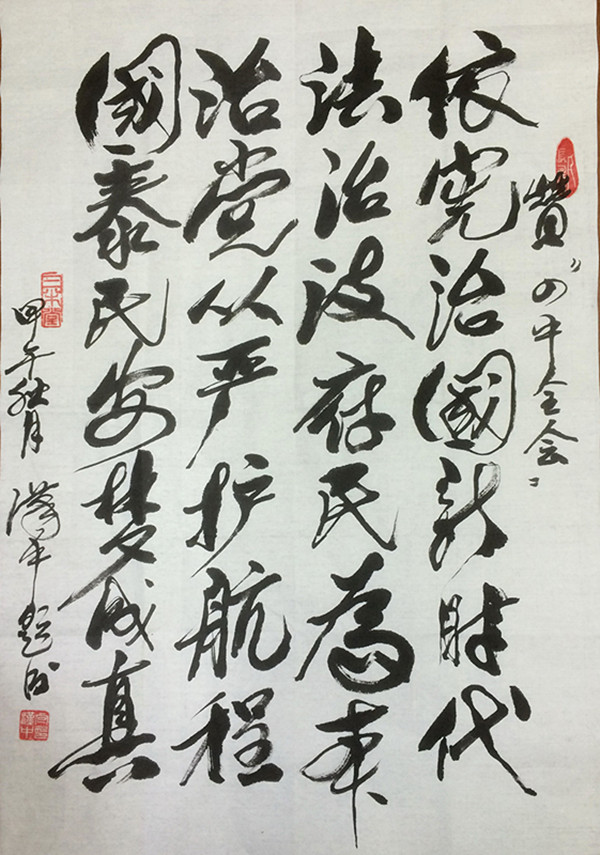 贊"四中全会"
依宪治國新時代
法治政府民為本
治党从严护航程
國泰民安梦成真
甲午秋月 漢平题